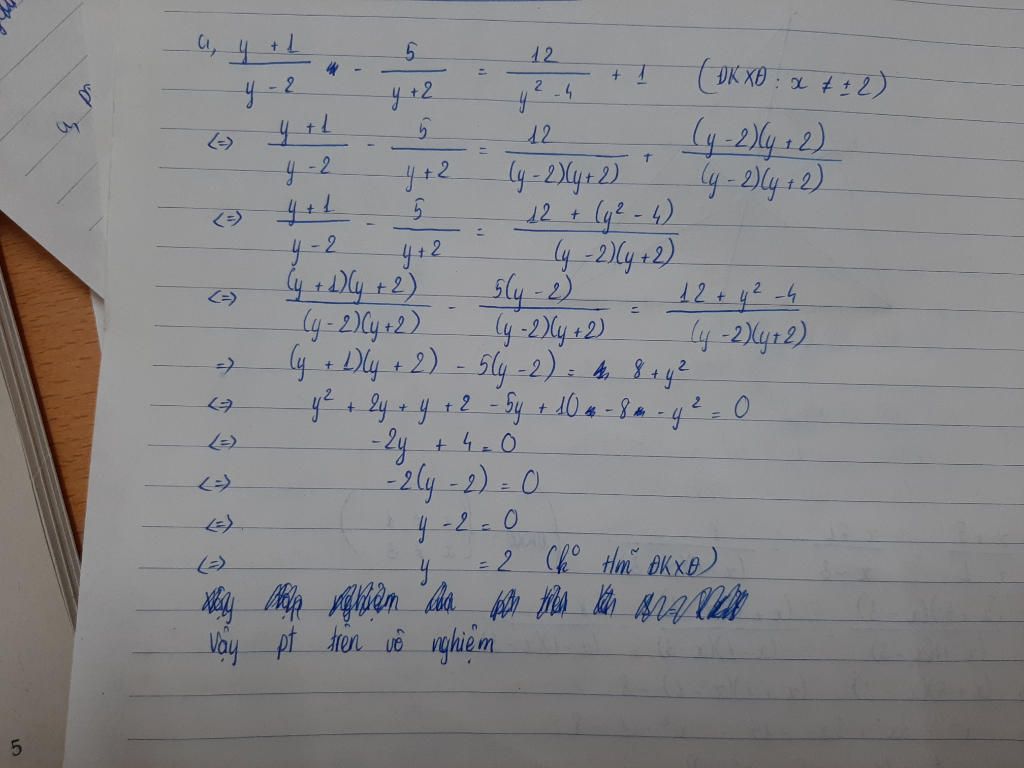 a, (y + 1)/(y - 2) - 5/(y + 2) = 12/(y² - 4) + 1 (ĐKXĐ : x ≠ ± 2)
<=> (y + 1)/(y - 2) - 5/(y + 2) = 12/((y - 2)(y + 2)) + ((y - 2)(y + 2))/((y - 2)(y + 2))
<=> (y + 1)/(y - 2) - 5/(y + 2) = (12 + (y² - 4))/((y - 2)(y + 2))
<=> ((y + 1)(y + 2))/((y - 2)(y + 2)) - (5(y - 2))/((y - 2)(y + 2)) = (12 + y² - 4)/((y - 2)(y + 2))
=> (y + 1)(y + 2) - 5(y - 2) = 8 + y²
<=> y² + 2y + y + 2 - 5y + 10 - 8 - y² = 0
<=> -2y + 4 = 0
<=> -2(y - 2) = 0
<=> y - 2 = 0
<=> y = 2 (k° tmĩ ĐKXĐ)
Vậy pt trên vô nghiệm
5